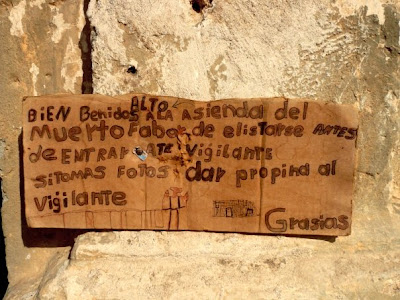 ALTO
BIEN Benidos A LA Asienda del
Muerto Fabor de elistarse ANTES
de ENTRAR ATE Vigilante
SiTOMAS FOTOS dar propina al
Vigilante
Grasias